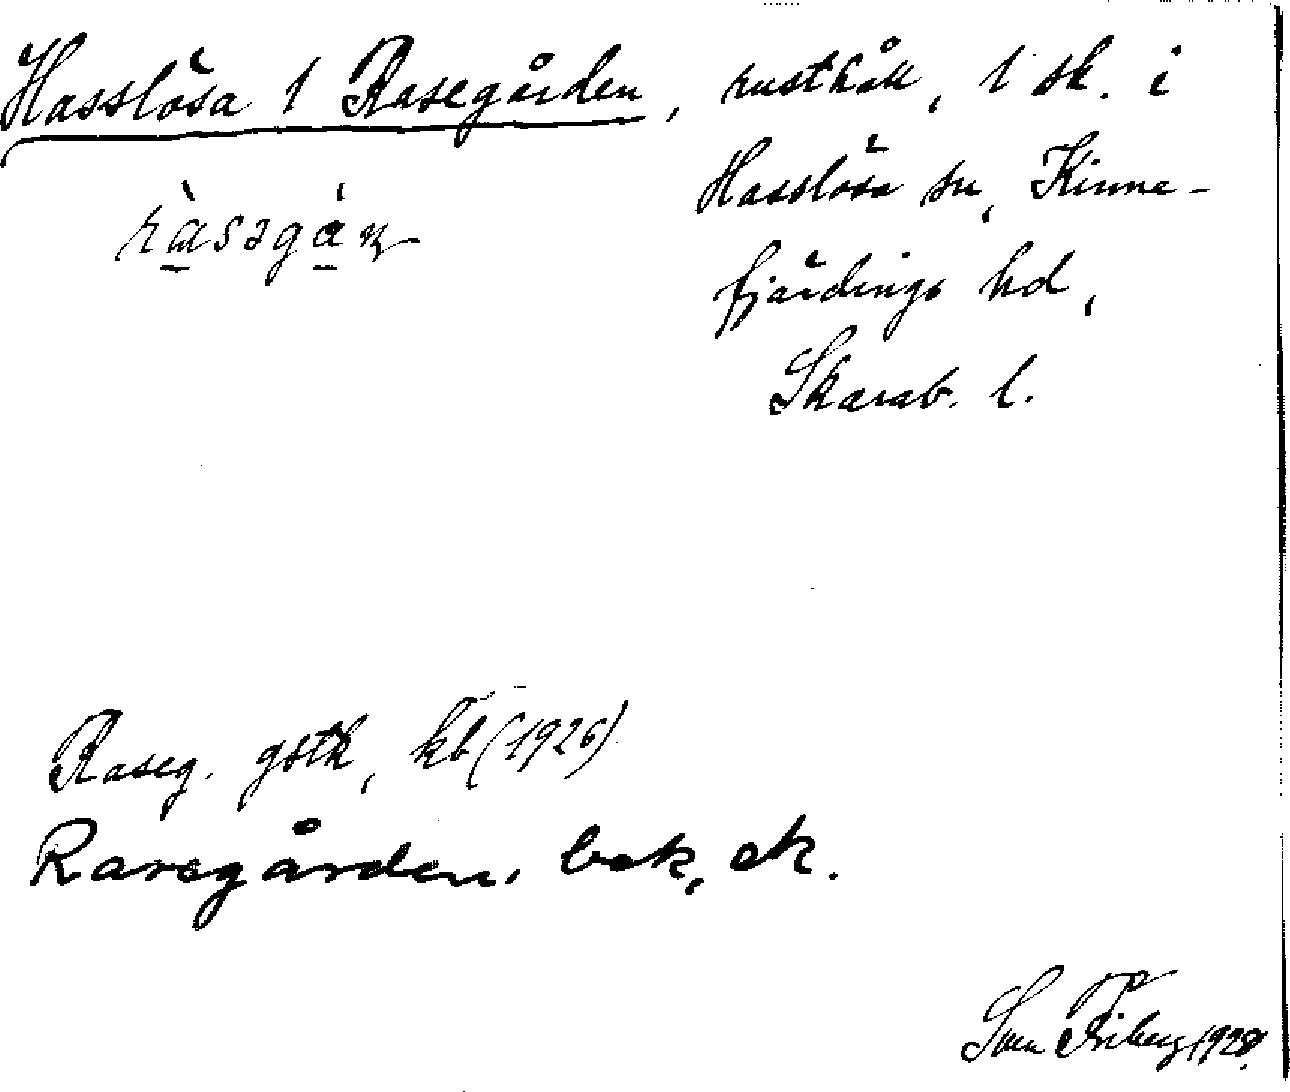 Hasslösa 1 Rasegården, rusthåll, 1 sk. i
Hasslösa sn, Kinne-
fjärdings hd,
Skarab. l.
Raseg. gstk, kb (1926)
Rasegården. bek, ek.
Sven Friberg 1928.